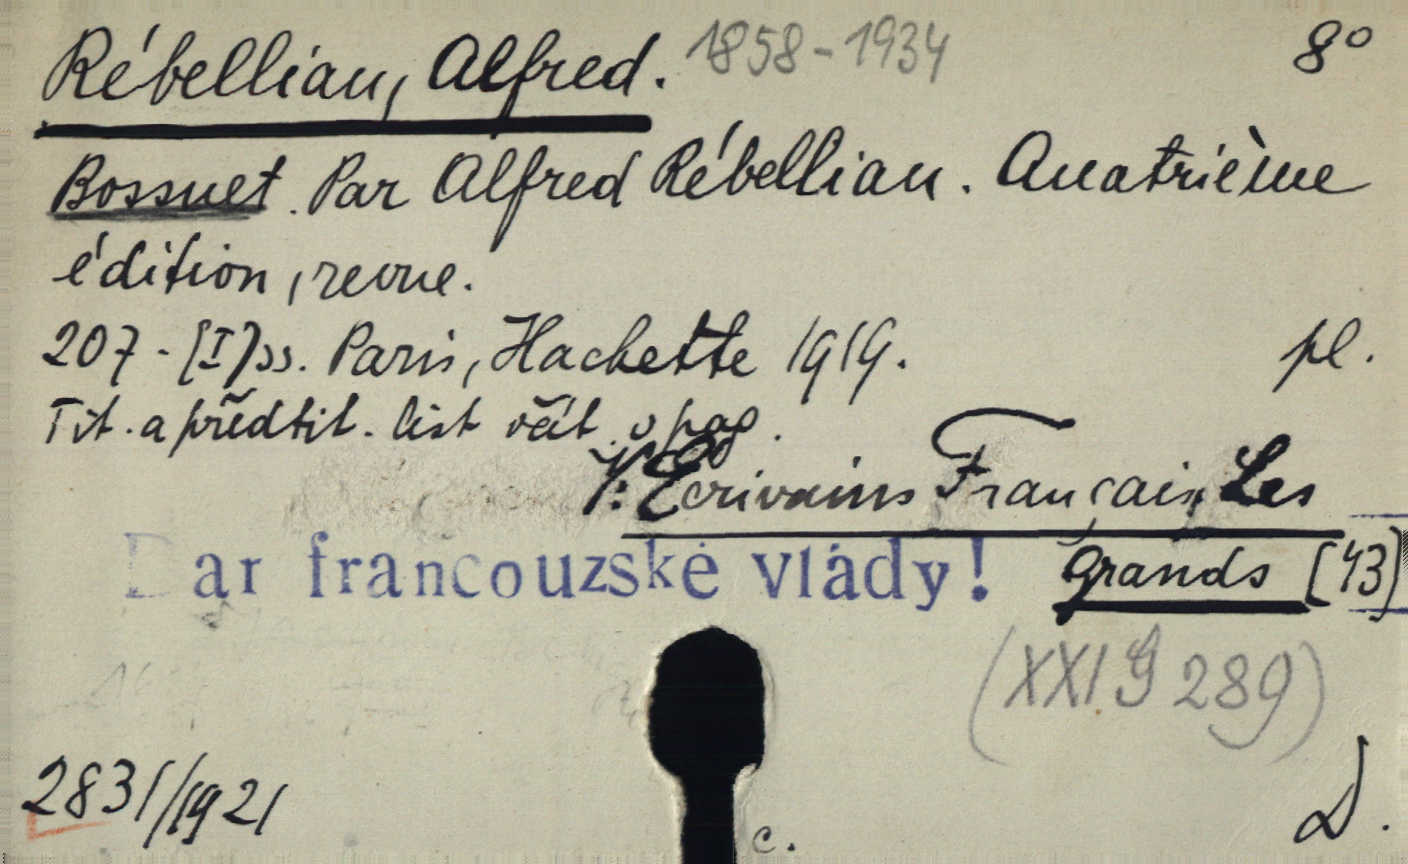 Rébelliau, Alfred. 1858-1934 8°
Bossuet. Par Alfred Rébelliau. Quatrième
édition, revue.
207-[I] ss. Paris, Hachette 1919. pl.
Tit. a předtit. list včít. v pag.
V: Ecrivains Français, Les
Dar francouzské vlády! grands [43]
(XXI G 289)
2831/1921
c. D.